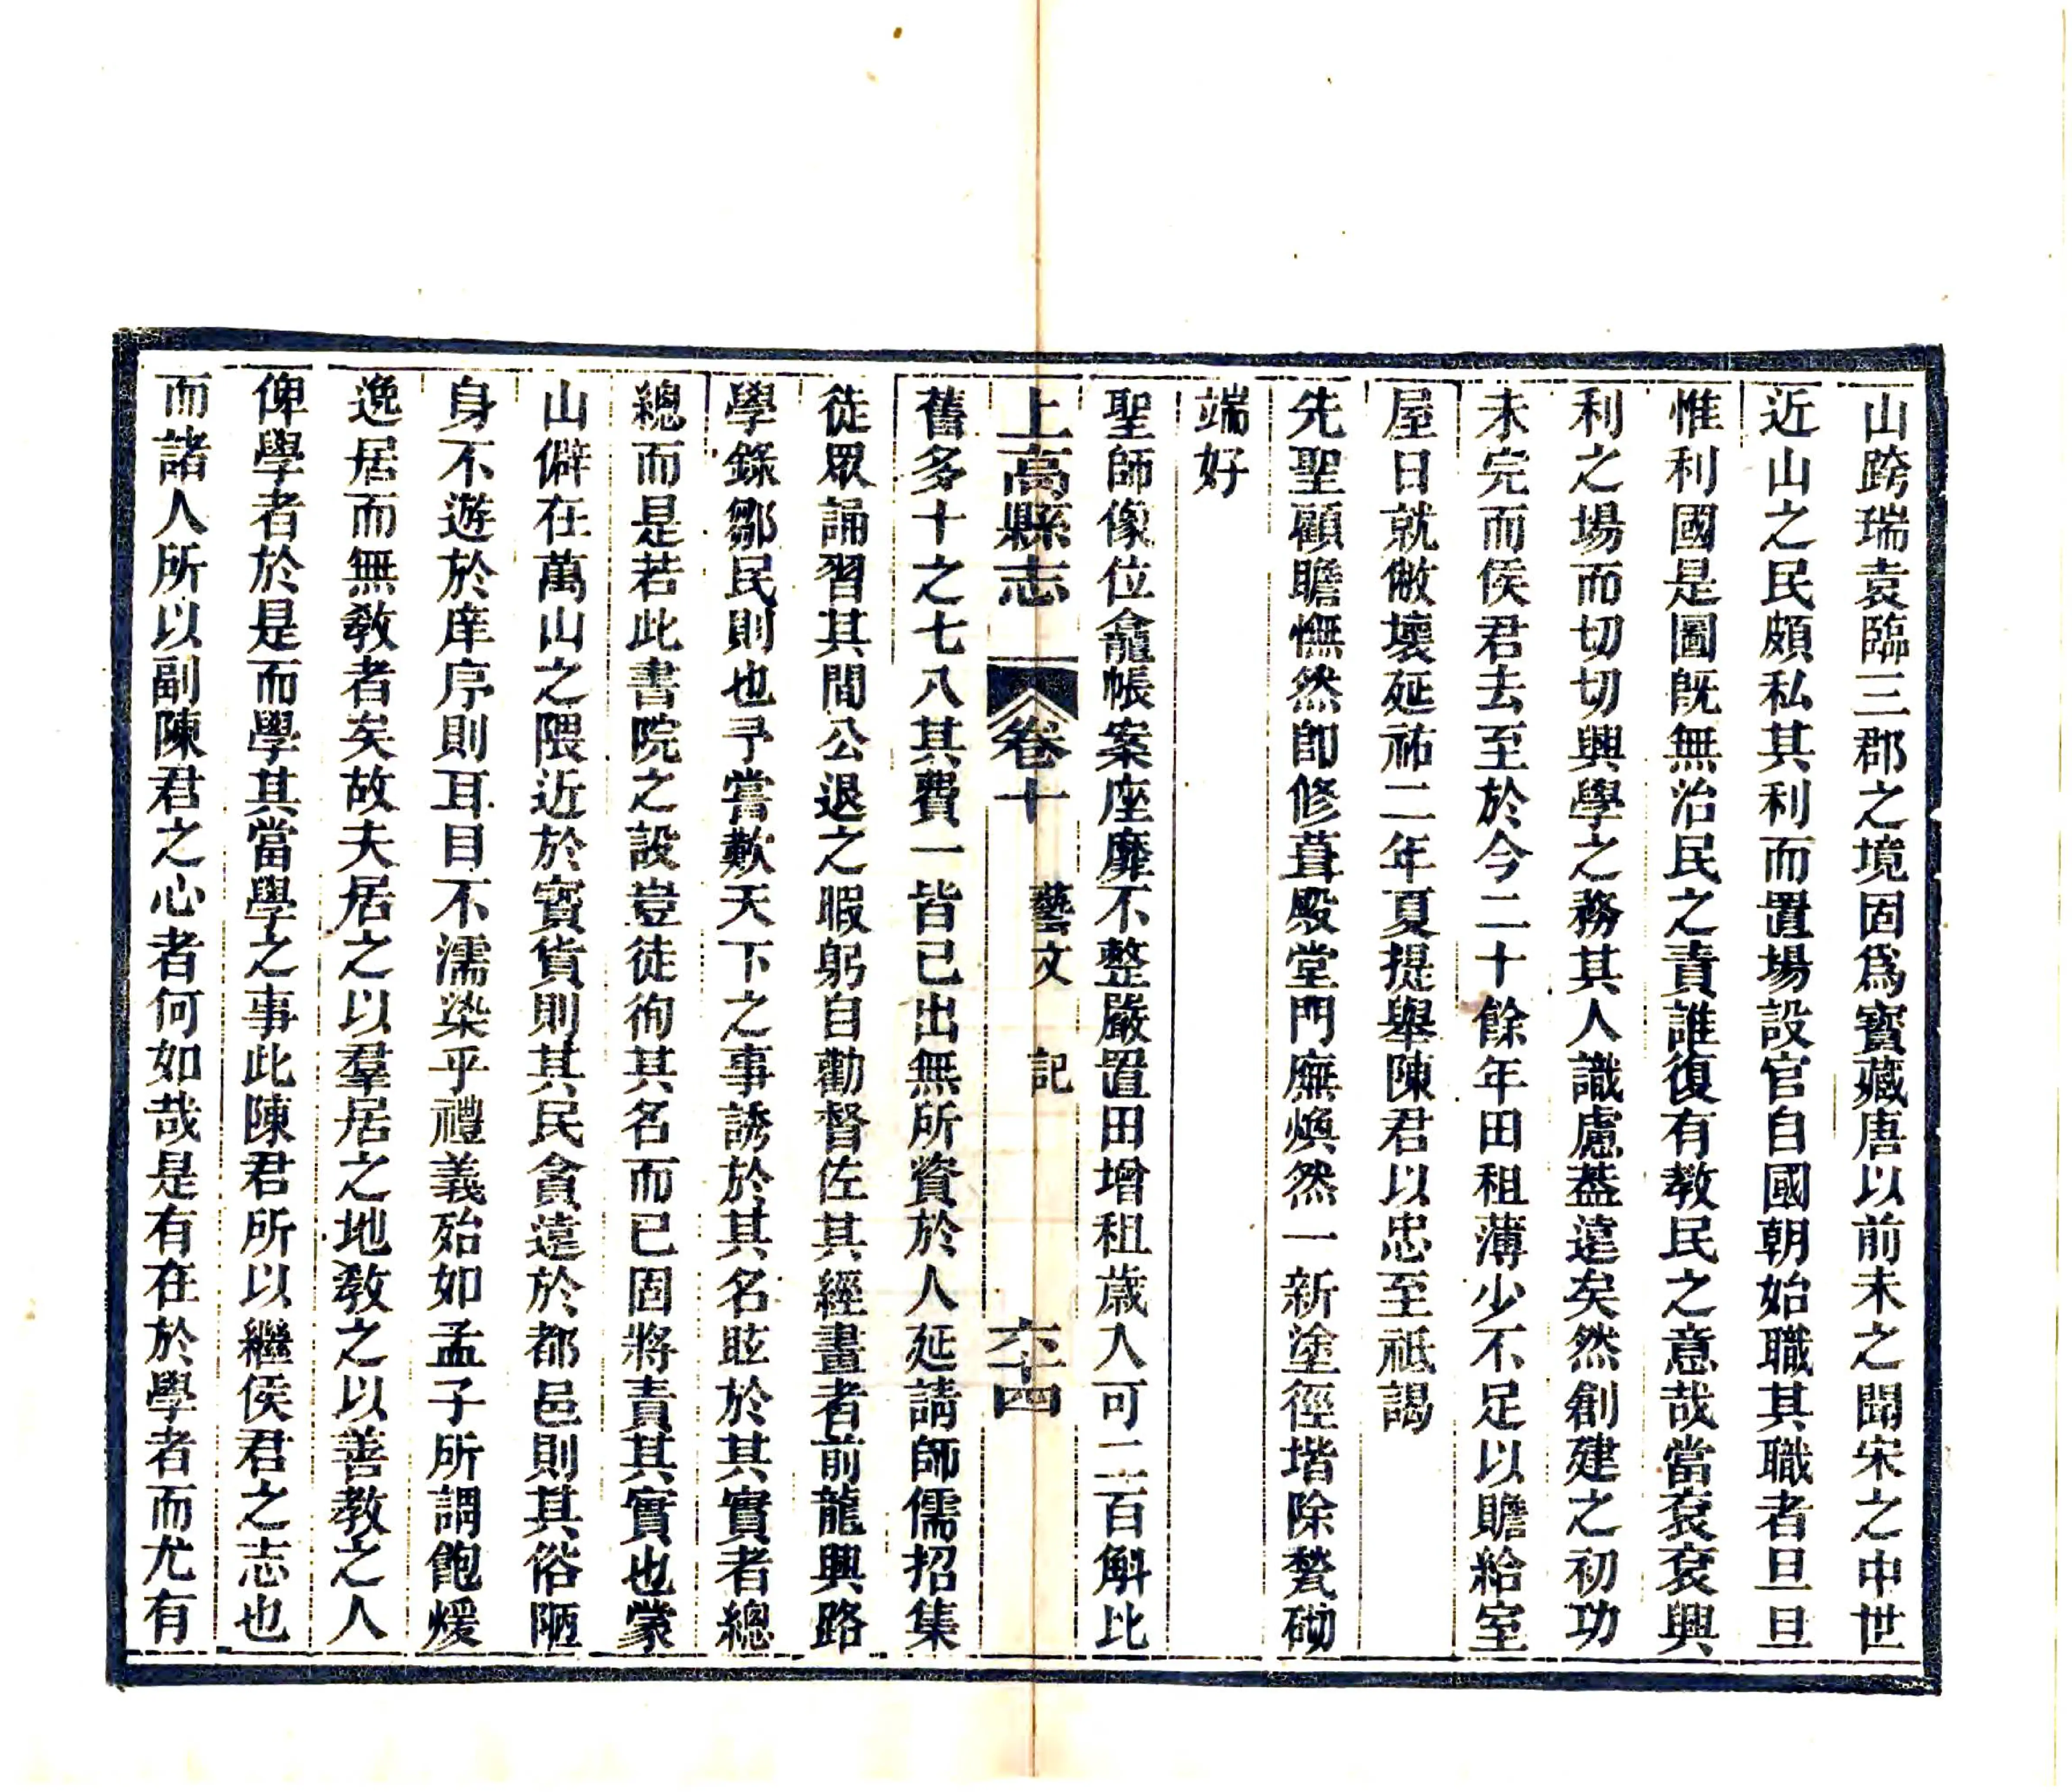 山跨瑞袁臨三郡之境固爲寶藏唐以前未之聞宋之中世
近山之民頗私其利而置場設官自國朝始職其職者旦旦
惟利國是圖旣無治民之責誰復有教民之意哉當袞袞興
利之場而切切興學之務其人識慮葢遠矣然創建之初功
未完而侯君去至於今二十餘年田租薄少不足以贍給室
屋日就敝壞延祐二年夏提舉陳君以忠至祗謁
先聖顧瞻憮然卽修葺殿堂門廡煥然一新塗徑堦除甃砌
端好
聖師像位龕帳案座靡不整嚴置田增租歲入可二百斛比
上高縣志 卷十 藝文 記 六十四
舊多十之七八其費一皆已出無所資於人延請師儒招集
徒眾誦習其間公退之暇躬自勸督佐其經畫者前龍興路
學錄鄒民則也予嘗歎天下之事誘於其名眩於其實者總
總而是若此書院之設豈徒徇其名而已固將責其實也蒙
山僻在萬山之隈近於寶貨則其民貪遠於都邑則其俗陋
身不遊於庠序則耳目不濡染乎禮義殆如孟子所謂飽煖
逸居而無教者矣故夫居之以羣居之地教之以善教之人
俾學者於是而學其當學之事此陳君所以繼侯君之志也
而諸人所以副陳君之心者何如哉是有在於學者而尤有